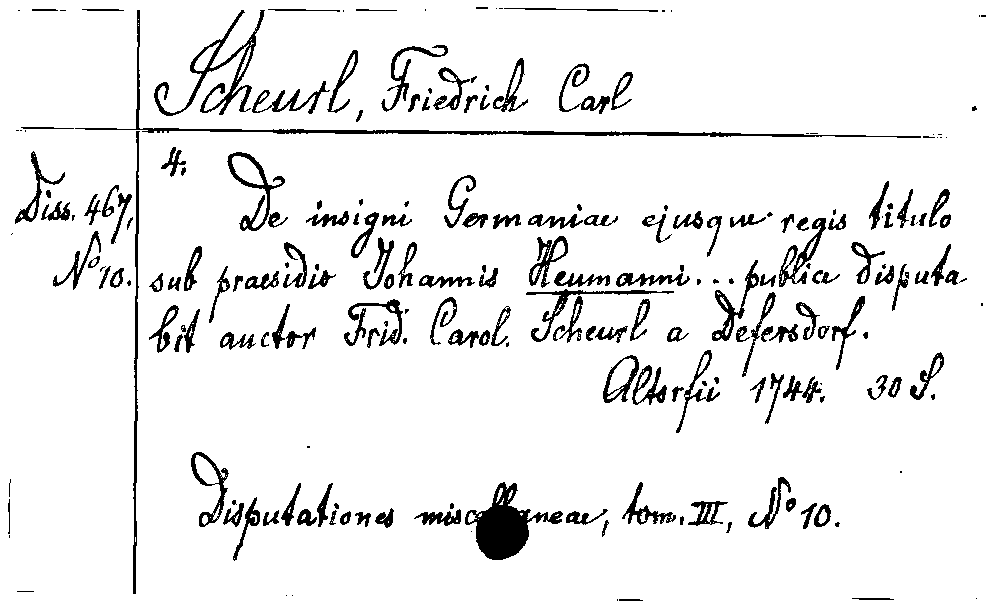 Scheurl, Friedrich Carl
Diss. 467,
No 10.
4.
De insigni Germaniae ejusque regis titulo
sub praesidio Johannis Heumanni... publice disputa
bit auctor Frid. Carol. Scheurl a Defersdorf.
Altorfii 1744. 30 S.
Disputationes miscellaneae, tom. III, No 10.